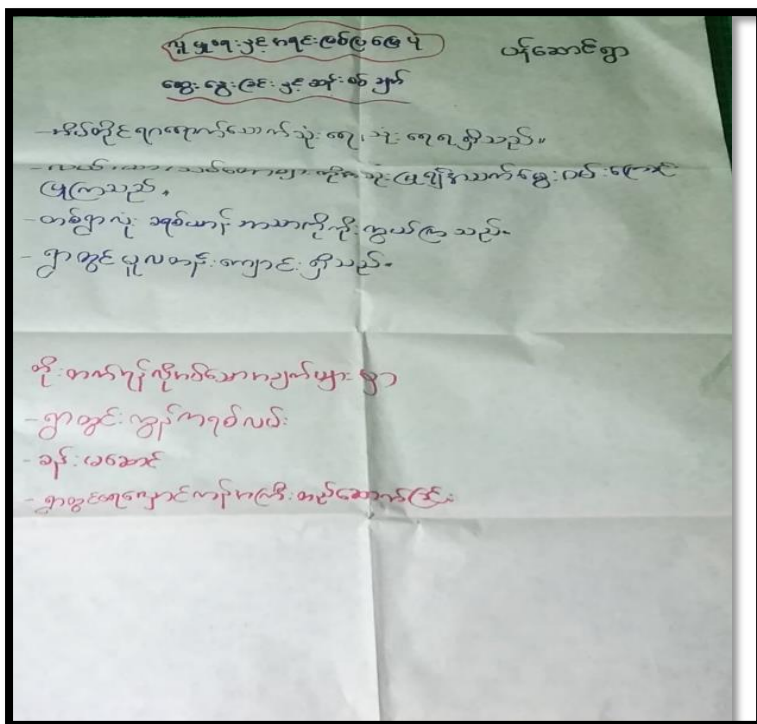 လူမှုရေးနှင့် အရင်းအမြစ်ပြမြေပုံ
ပန်ဆောင်ရွာ
ဆွေးနွေးခြင်းနှင့် ဆန်းစစ်ချက်
- အိမ်တိုင်ရာရောက်သောက်သုံးရေ၊ သုံးရေရရှိသည်။
- လယ်၊ ယာ၊ သစ်တောများကိုအသုံးပြု၍ အသက်မွေးဝမ်းကြောင်း
ပြုကြသည်။
- တစ်ရွာလုံး ခရစ်ယာန် ဘာသာကိုကိုးကွယ်ကြသည်။
- ရွာတွင် မူလတန်းကျောင်းရှိသည်။
တိုးတက်ရန်လိုအပ်သောအချက်များမှာ
- ရွာတွင်းကွန်ကရစ်လမ်း
- ခန်းမဆောင်
- ရွာတွင်ရေလှောင်ကန်အကြီးတည်ဆောက်ခြင်း